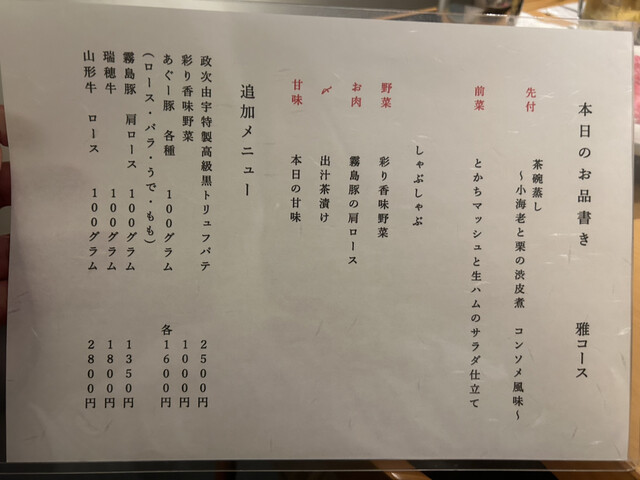 本日のお品書き　雅コース
先付
茶碗蒸し
～小海老と栗の渋皮煮　コンソメ風味～
前菜
とかちマッシュと生ハムのサラダ仕立て
しゃぶしゃぶ
野菜　彩り香味野菜
お肉　霧島豚の肩ロース
〆　出汁茶漬け
甘味　本日の甘味
追加メニュー
政次由宇特製高級黒トリュフパテ　2500円
彩り香味野菜　1000円
あぐー豚　各種　100グラム　各1600円
(ロース・バラ・うで・もも)
霧島豚　肩ロース　100グラム　1350円
瑞穂牛　100グラム　1800円
山形牛　ロース　100グラム　2800円